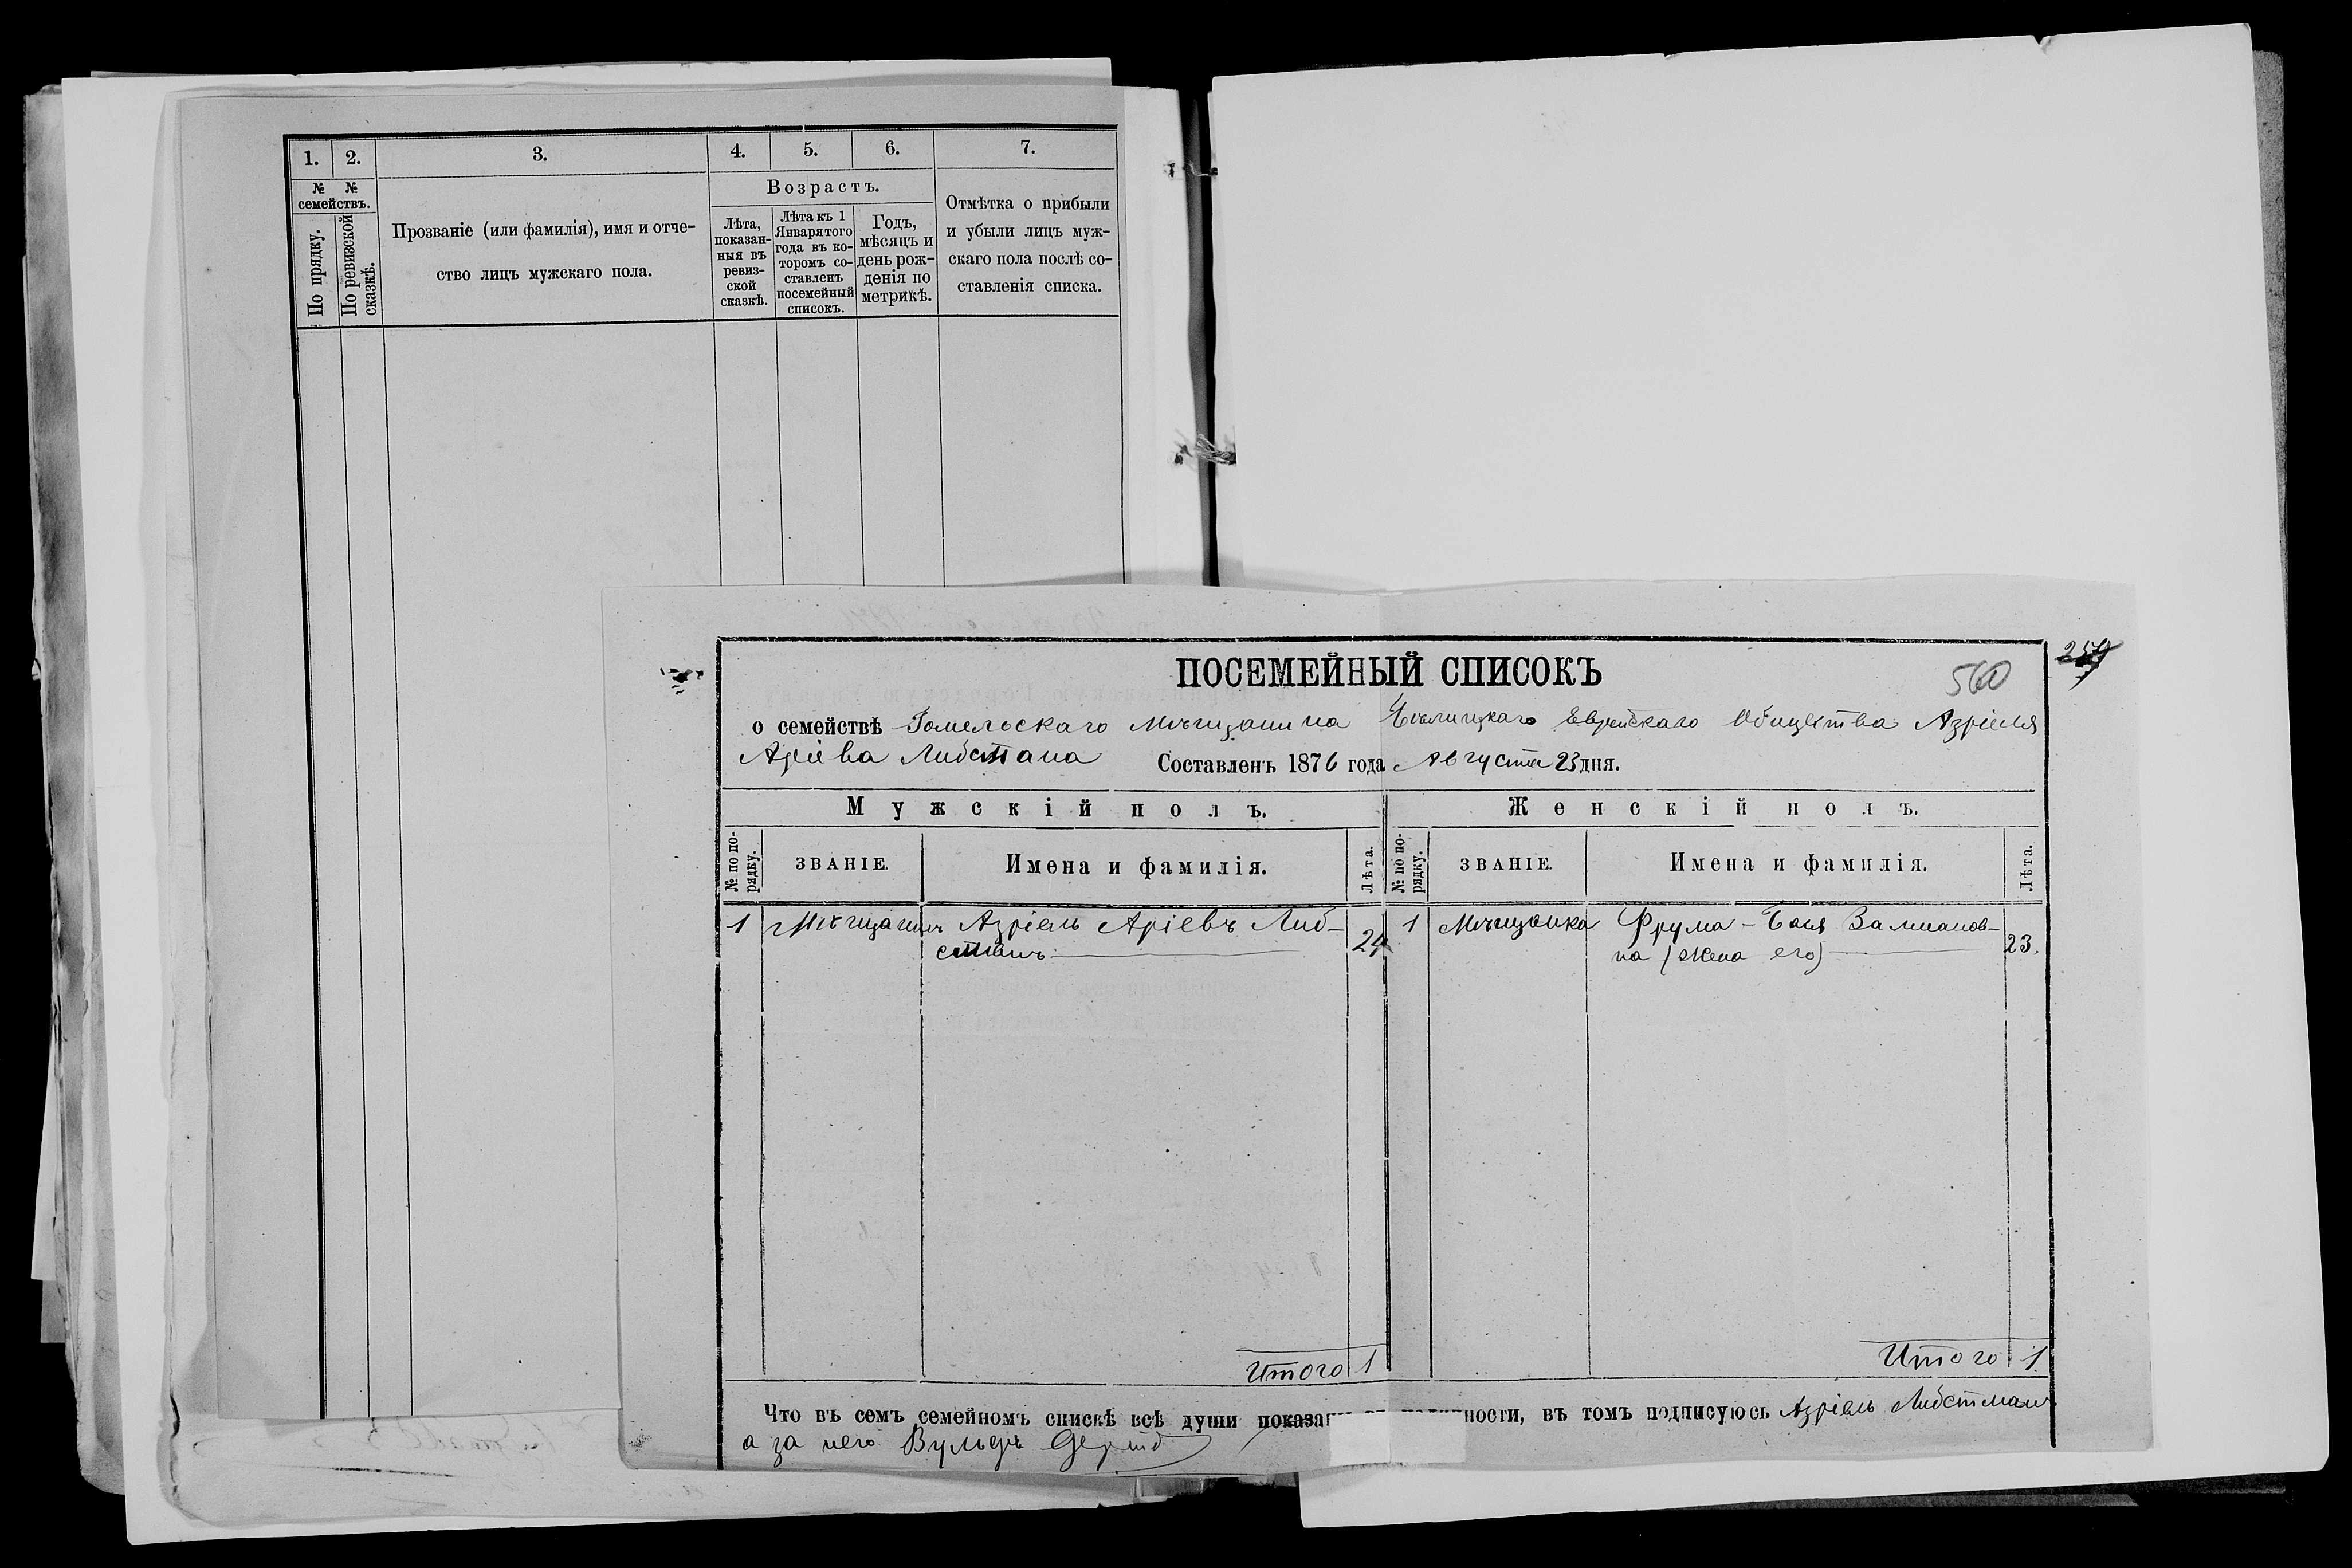 1. 2. 3. 4. 5. 6. 7.
№ № семействъ.
По прядку.
По ревизской сказкѣ.
Прозваніе (или фамилія), имя и отче-
ство лицъ мужскаго пола.
Возрастъ.
Лѣта,
показан-
ныя въ
ревиз-
ской
сказкѣ.
Лѣта къ 1
Января того
года въ ко-
торомъ со-
ставленъ
посемейный
списокъ.
Годъ,
мѣсяцъ и
день рож-
денія по
метрикѣ.
Отмѣтка о прибыли
и убыли лицъ муж-
скаго пола послѣ со-
ставленія списка.
ПОСЕМЕЙНЫЙ СПИСОКЪ
560
о семействѣ Гомельскаго мѣщанина Бѣлицкаго Еврейскаго Общества Азріеля
Аріева Либстана Составленъ 1876 года Августа 23 дня.
Мужскій полъ. Женскій полъ.
№ по по-
рядку.
ЗВАНІЕ.
Имена и фамилія.
Лѣта.
№ по по-
рядку.
ЗВАНІЕ.
Имена и фамилія.
Лѣта.
1 Мѣщанинъ Азріель Аріевъ Либ-
станъ 24
1 Мѣщанка Фрума-Бася Залманов-
на (жена его) 23.
Итого 1
Итого 1
Что въ семъ семейномъ спискѣ всѣ души показаны ности, въ томъ подписуюсь Азріель Либстманъ
а за него Вульфъ